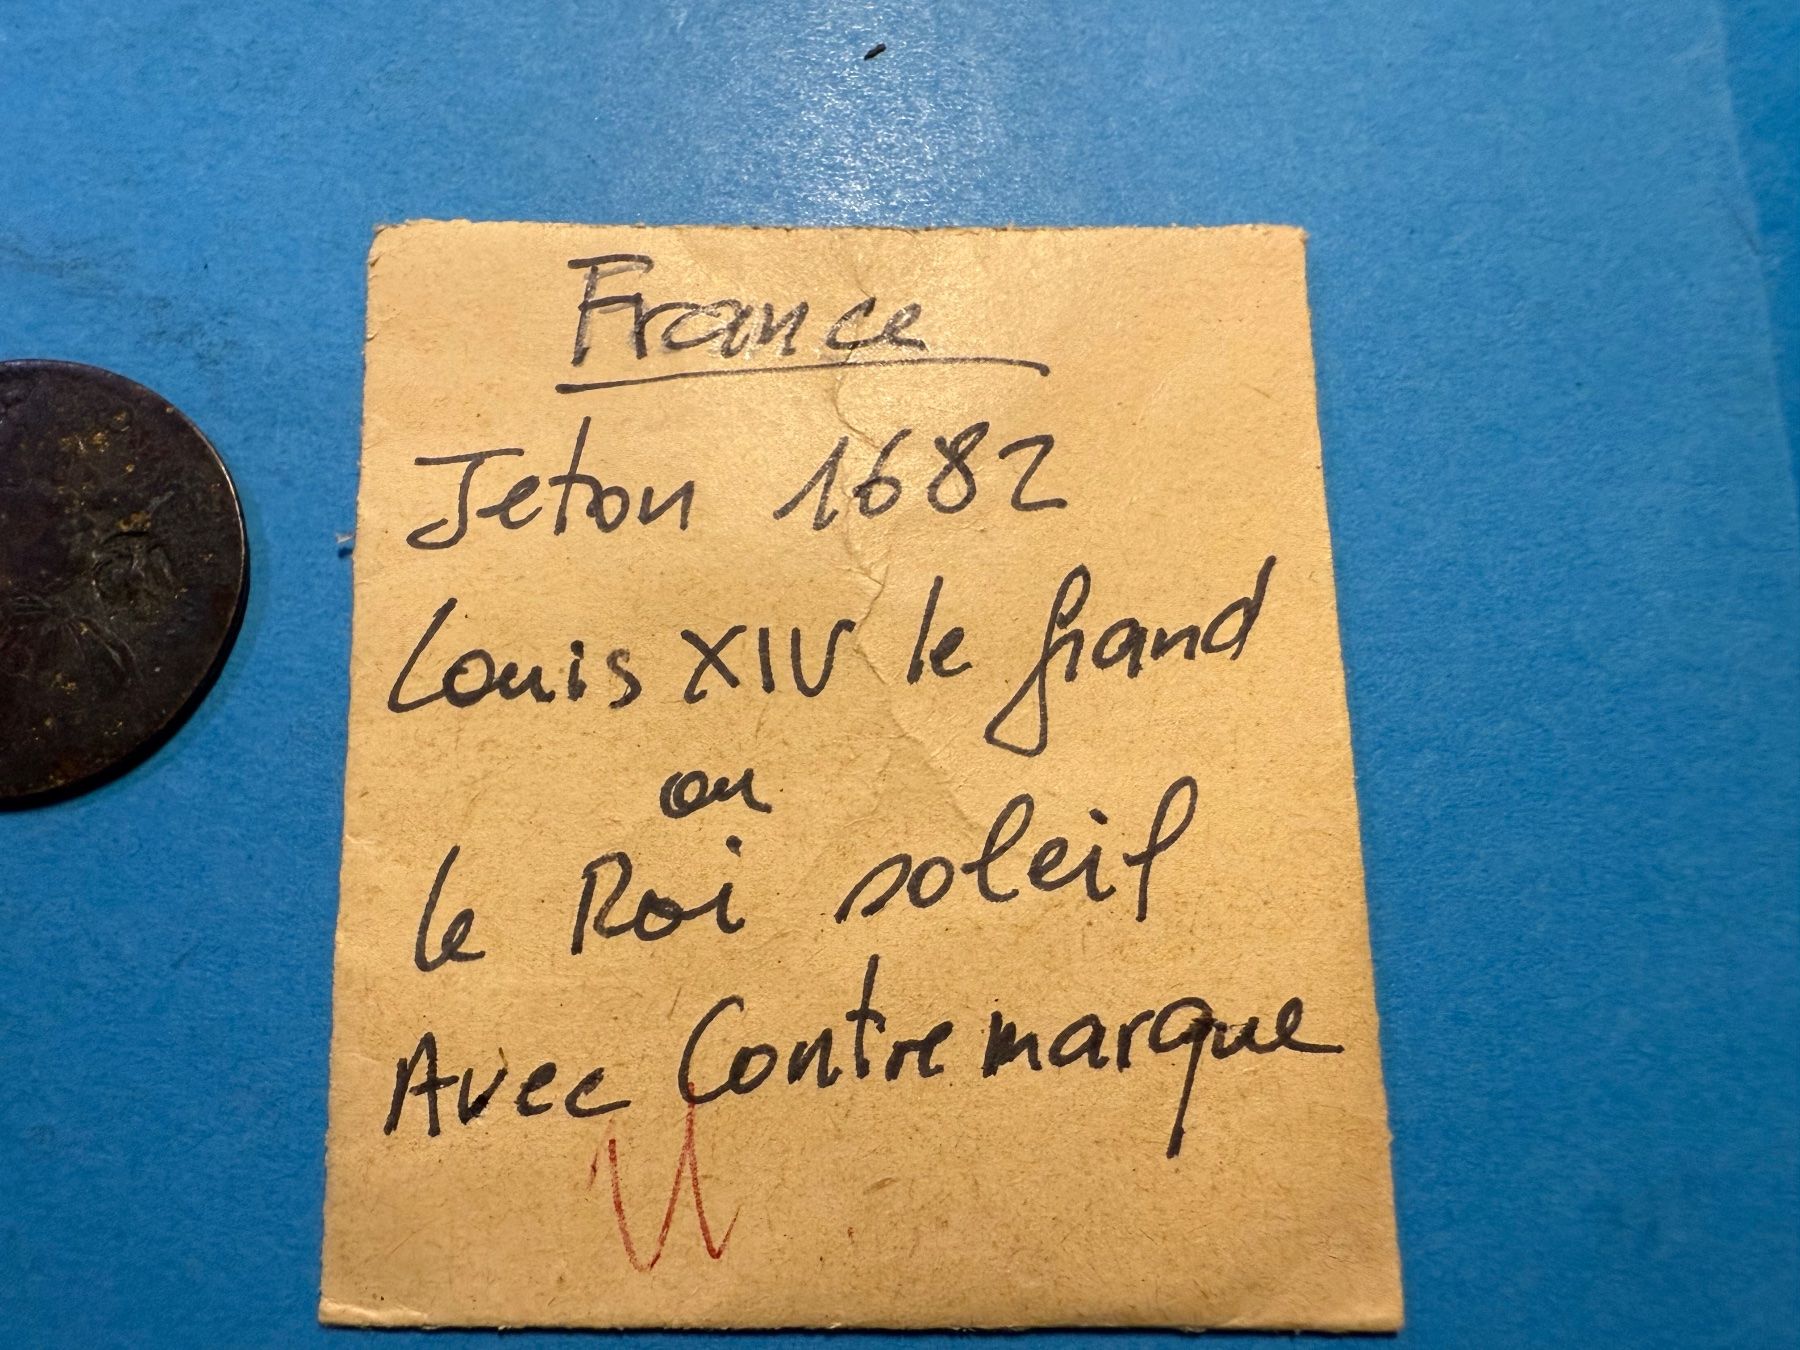 France
Jeton 1682
Louis XIV le grand
ou
le Roi soleil
Avec Contremarque
U